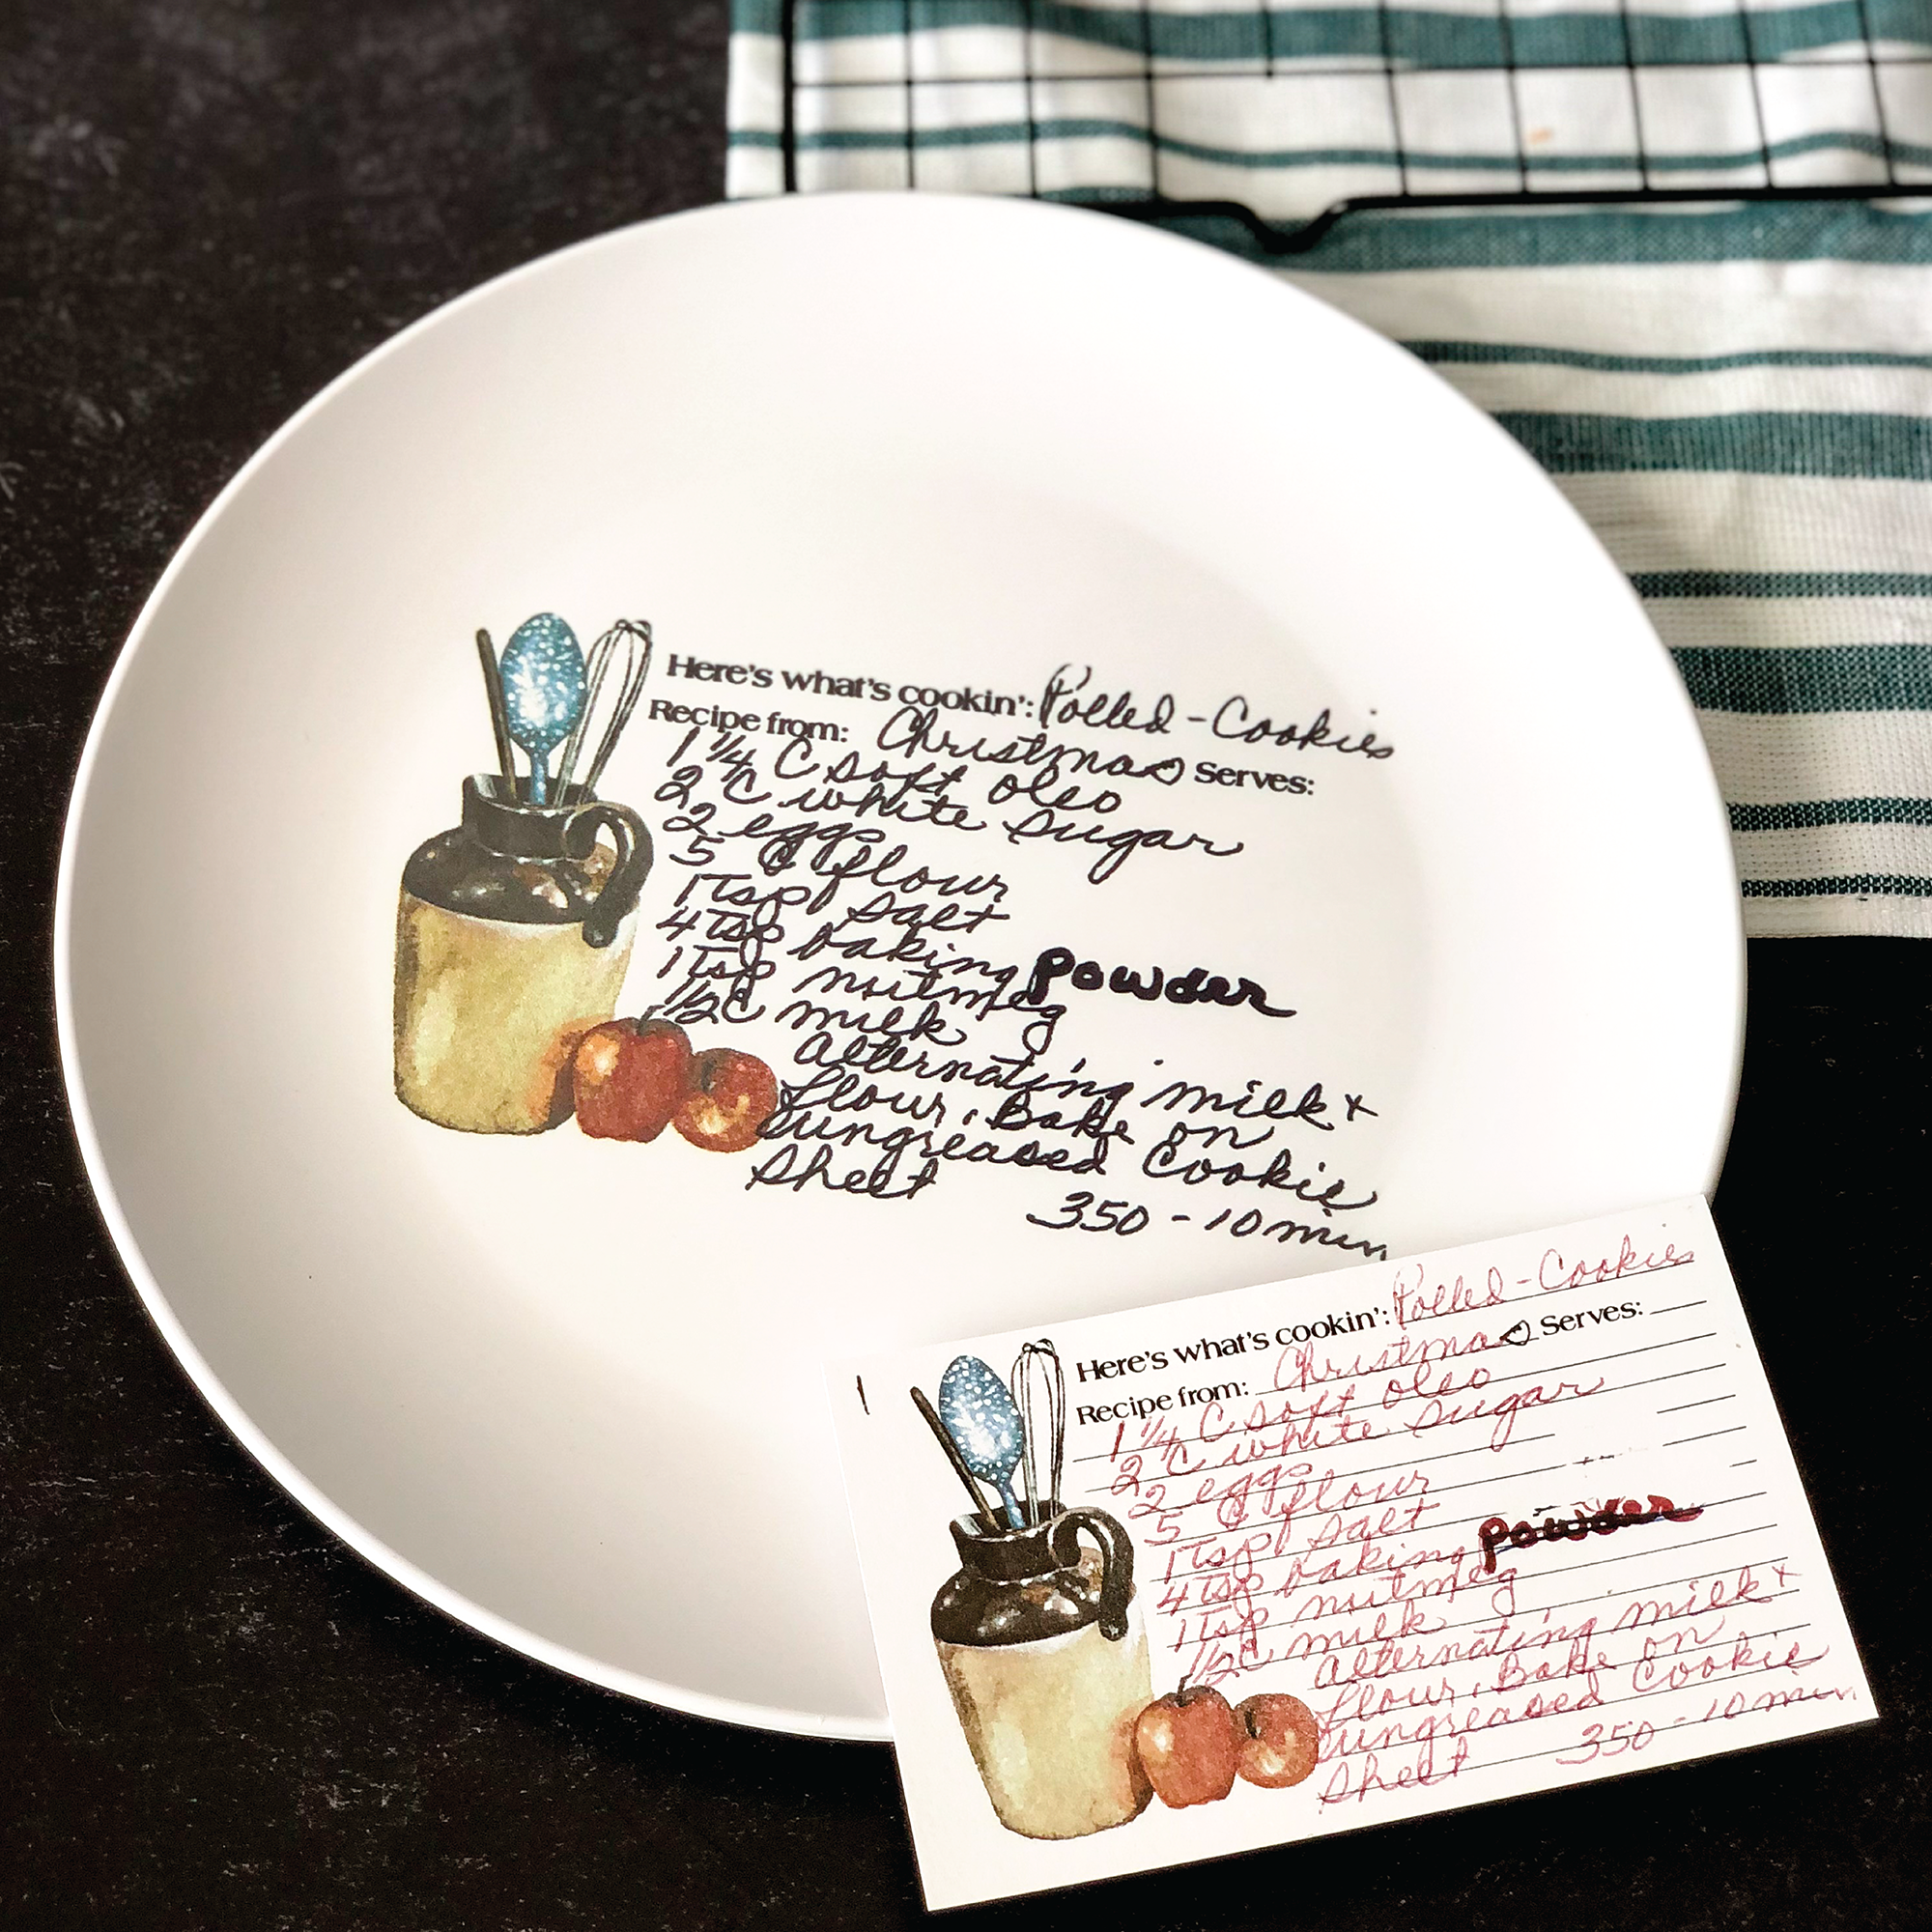 Here's what's cookin': Rolled-Cookies
Recipe from: Christmas Serves:
1 1/4 C soft oleo
2 C white sugar
2 eggs
5 C flour
1 tsp salt
4 tsp baking powder
1 tsp nutmeg
1/2 C milk
Alternating milk +
flour, Bake on
ungreased Cookie
Sheet
350 - 10 min
Here's what's cookin': Rolled-Cookies
Recipe from: Christmas Serves:
1 1/4 C soft oleo
2 C white sugar
2 eggs
5 C flour
1 tsp salt
4 tsp baking powder
1 tsp nutmeg
1/2 C milk
Alternating milk +
flour, Bake on
ungreased Cookie
Sheet 350 - 10 min